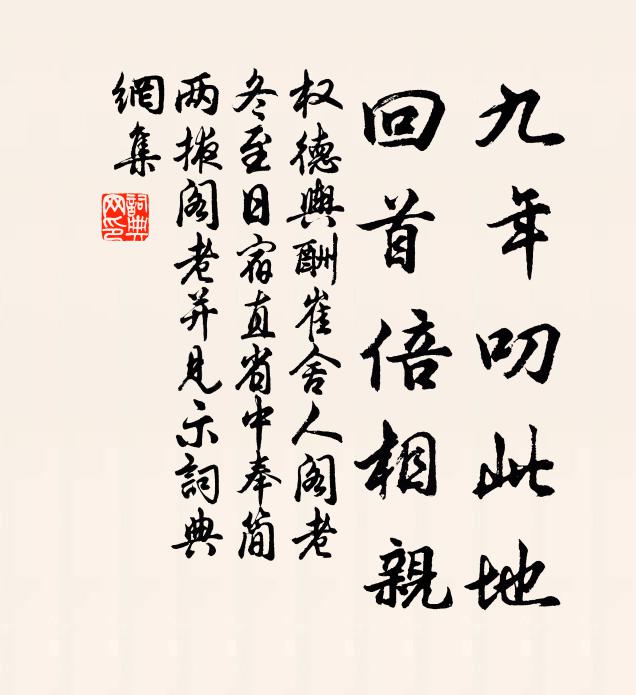 九年叨此地
回首倍相親
权德輿酬崔舍人阁老
冬至日宿直省中奉简
两掖阁老并見示詞典
網集
詞典
网印